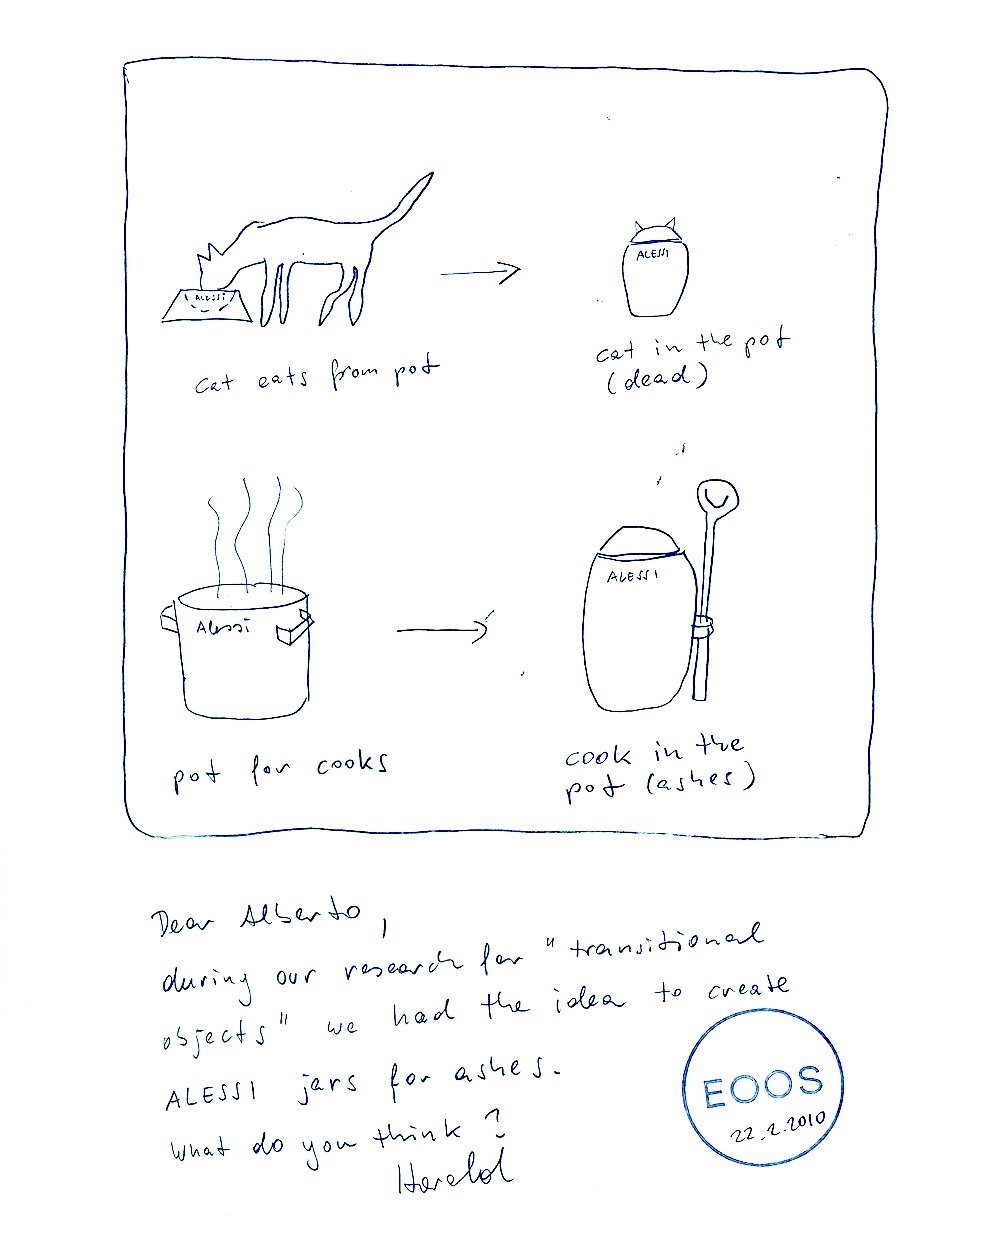 ALESSI
ALESSI
cat eats from pot
cat in the pot
(dead)
Alessi
ALESSI
pot for cooks
cook in the
pot (ashes)
Dear Alberto,
during our research for "transitional
objects" we had the idea to create
ALESSI jars for ashes.
What do you think?
Harald
EOOS
22.2.2010